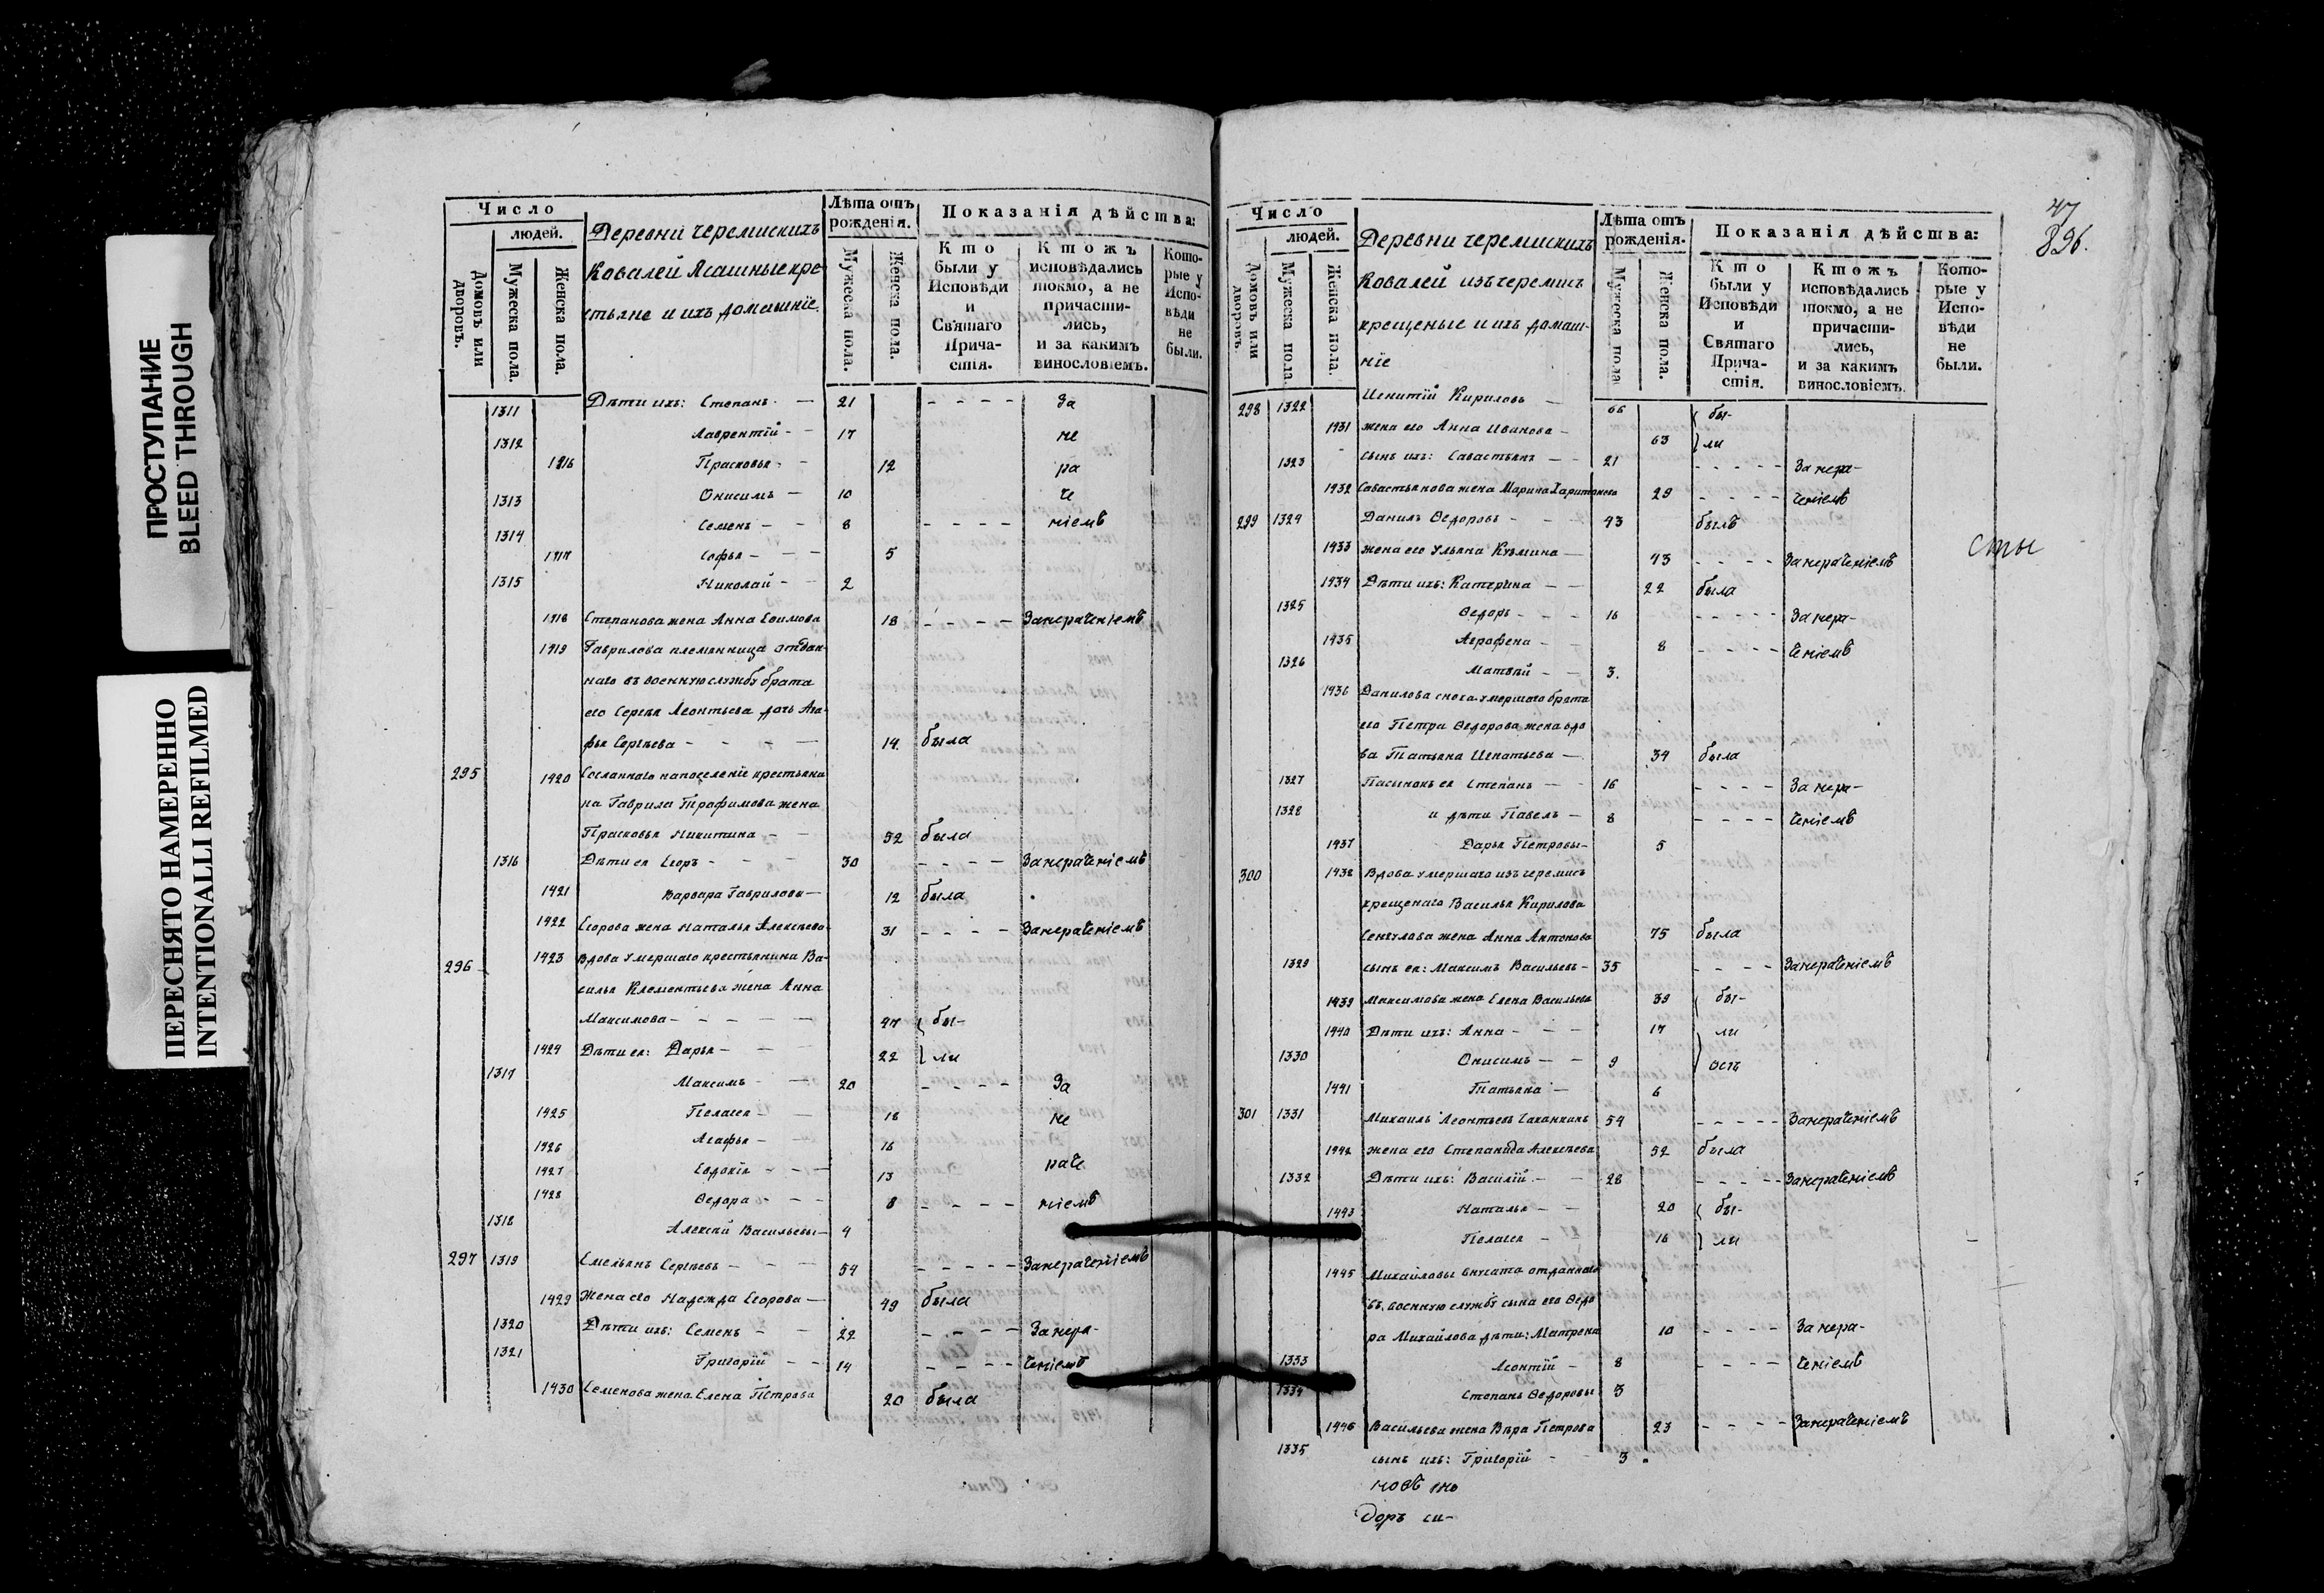 ПРОСТУПАНИЕ
BLEED THROUGH
ПЕРЕСНЯТО НАМЕРЕННО
INTENTIONALLI REFILMED
Число
людей.
Домовъ или дворовъ.
Мужеска пола.
Женска пола.
Деревни черемискихъ
Ковалей Ясашные кре-
стьяне и ихъ домашніе.
Лѣта отъ рожденія.
Мужеска пола.
Женска пола.
Показанія дѣйства:
Кто были у Исповѣди и Святаго Причастія.
Ктожъ исповѣдались токмо, а не причастились, и за какимъ винословіемъ.
Которые у Исповѣди не были.
1311 Дѣти ихъ: Степанъ 21 - - - - За
1312 Лаврентій 17 не
1416 Прасковья 12 ра
1313 Онисимъ 10 че
1314 Семенъ 8 - - - - ніемъ
1417 Софья 5
1315 Николай 2
1418 Степанова жена Анна Ефимова 18 - - - - Занераченіемъ
1419 Гаврилова племянница отдан-
наго въ военную службу брата
его Сергѣя Леонтьева дочь Ага-
фья Сергѣева 14 была
295 1420 Сосланнаго на поселеніе крестьяни-
на Гаврила Трафимова жена
Прасковья Никитина 52 была
1316 Дѣти ея Егоръ 30 - - - - Занераченіемъ
1421 Варвара Гавриловы 12 была
1422 Егорова жена Наталья Алексѣева 31 - - - - Занераченіемъ
296 1423 Вдова умершаго крестьянина Ва-
силья Клементьева жена Анна
Максимова 47 бы-
1424 Дѣти ея: Дарья 22 ли
1317 Максимъ 20 - - - - За
1425 Пелагея 18 не
1426 Агафья 16
1427 Евдокія 13 раче
1428 Ѳедора 8 - - - - ніемъ
1318 Алексѣй Васильевы 4
297 1319 Емельянъ Сергѣевъ 54 - - - - - Занераченіемъ
1429 Жена его Надежда Егорова 49 была
1320 Дѣти ихъ: Семенъ 22 - - - - Занера-
1321 Григорій 14 - - - - ченіемъ
1430 Семенова жена Елена Петрова 20 была
47
896.
Число
людей.
Домовъ или дворовъ.
Мужеска пола.
Женска пола.
Деревни черемискихъ
Ковалей изъ черемисъ
крещеные и ихъ домаш-
ніе
Лѣта отъ рожденія.
Мужеска пола.
Женска пола.
Показанія дѣйства:
Кто были у Исповѣди и Святаго Причастія.
Ктожъ исповѣдались токмо, а не причастились, и за какимъ винословіемъ.
Которые у Исповѣди не были.
298 1322 Игнатій Кириловъ 66 бы-
1431 жена его Анна Иванова 63 ли
1323 сынъ ихъ: Савастьянъ 21 - - - - - Занера-
1432 Савастьянова жена Марина Харитонова 29 - - - - ченіемъ
299 1324 Данилъ Ѳедоровъ 43 былъ
1433 жена его Ульяна Кузмина 43 - - - - Занераченіемъ
сты
1434 Дѣти ихъ: Катерина 22 была
1325 Ѳедоръ 16 - - - - - Занера-
1435 Аграфена 8 - - - - ченіемъ
1326 Матвѣй 3.
1436 Данилова сноха умершаго брата
его Петра Ѳедорова жена вдо
ва Татьяна Игнатьева 34 была
1327 Пасынокъ ея Степанъ 16 - - - - Занера-
1328 и дѣти Павелъ 8 - - - - ченіемъ
1437 Дарья Петровы 5
300 1438 Вдова умершаго изъ черемисъ
крещенаго Василья Кирилова
жена Анна Антонова 75 была
1329 сынъ ея: Максимъ Васильевъ 35 - - - - Занераченіемъ
1439 Максимова жена Елена Васильева 39 бы-
1440 Дѣти ихъ: Анна 17 ли
1330 Онисимъ 9 всѣ
1441 Татьяна 6
301 1331 Михаилъ Леонтьевъ 54 - - - - - Занераченіемъ
1442 жена его Степанида Алексѣева 52 была
1332 Дѣти ихъ: Василій 28 - - - - - Занераченіемъ
1443 Наталья 20 бы-
Пелагея 16 ли
1445 Михайловы внучата отданнаго
въ военную службу сына его Ѳедо
ра Михайлова дѣти: Матрена 10 - - - - Занера-
1333 Леонтій 8 - - - - ченіемъ
1334 Степанъ Ѳедоровы 3
1446 Васильева жена Вѣра Петрова 23 - - - - Занераченіемъ
1335 сынъ ихъ: Григорій 3
Доръ си-